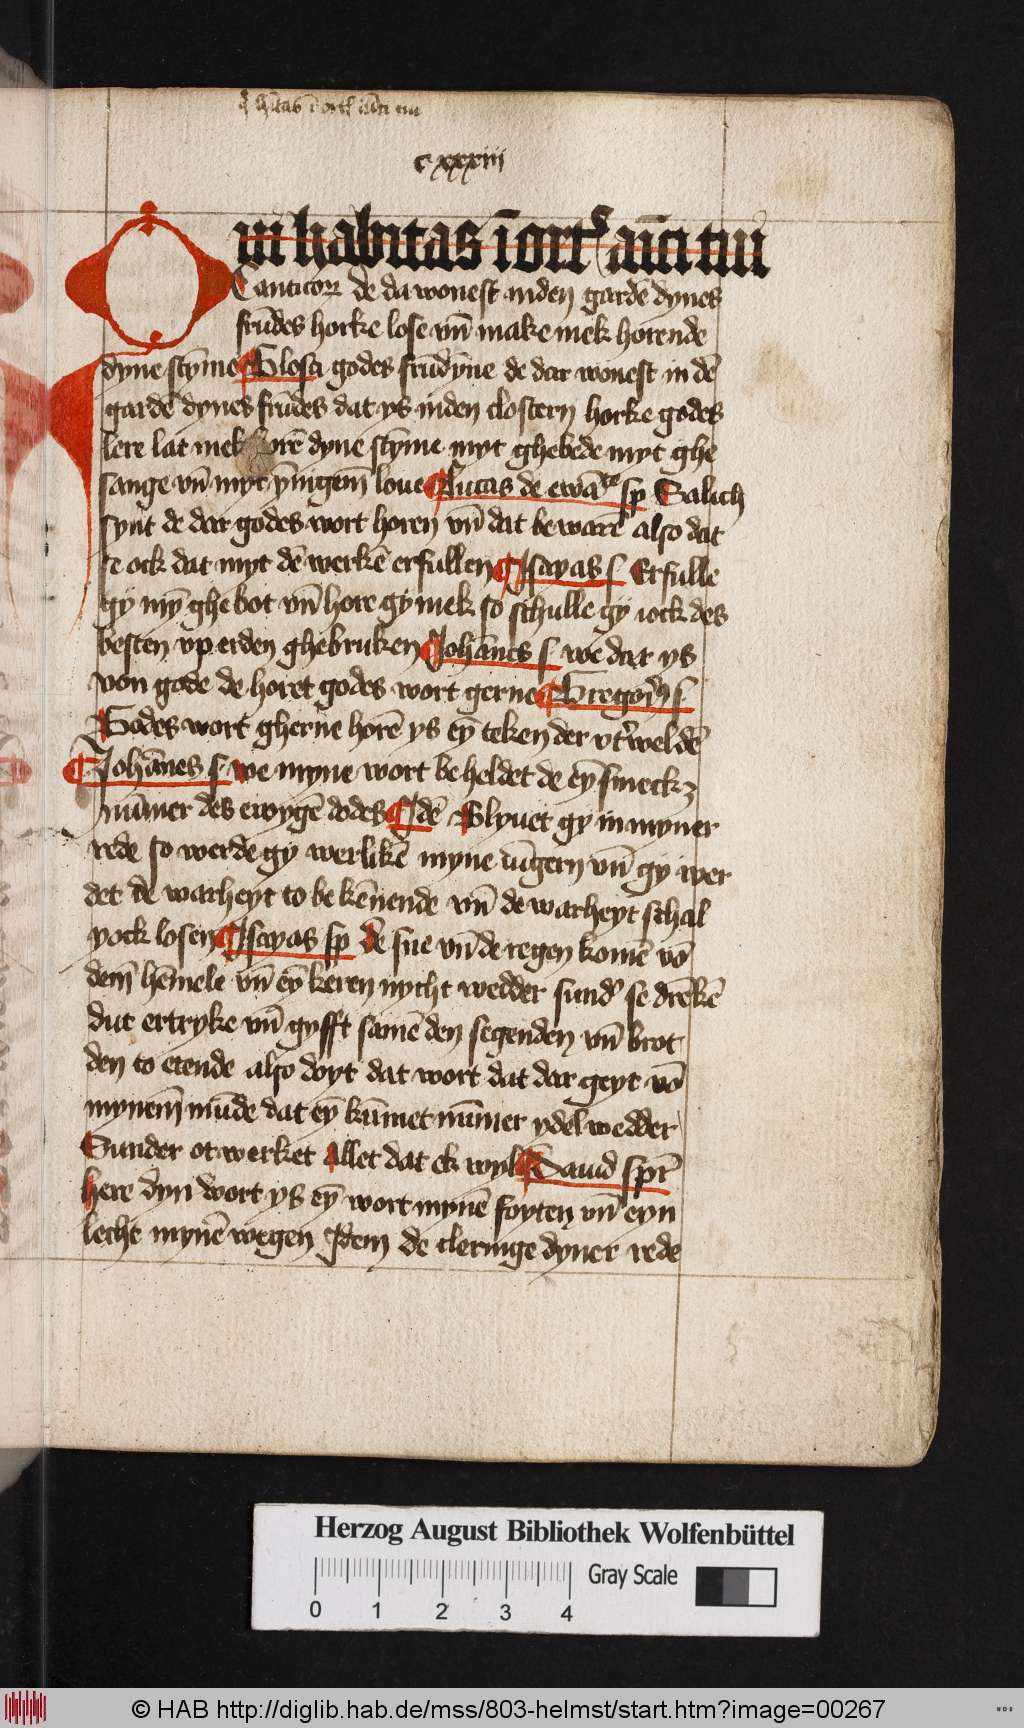 q̄ hītas ī ortˢ aīci tui
cxxxiii
Qui habitas ī ortˢ aīci tui
Canticoꝝ de da wonest inden gardē dynes
frūdes horke lose vn̄ make mek horende
dyne stȳme Glosa godes frūdȳne de dar wonest in dē
gardē dynes frūdes dat ys inden clostern horke godes
lere lat mek horē dyne stȳme myt ghebede myt ghe
sange vn̄ myt ȳnigem̄ loue Lucas de ewāᵗᵉ sp Salich
synt de dar godes wort horen vn̄ dat bewarē also dat
se ock dat myt dē werkē erfullen Isayas s Erfulle
gy mȳ ghebot vn̄ hore gy mek so schulle gy iock des
besten vp erden ghebruken Johānes s we dar ys
von gode de horet godes wort gerne Gregoriꝰ s
Godes wort gherne horē ys eȳ teken der vt͛weldē
Johānes s we myne wort beheldet de eȳ smeckꝫ
nūmer des ewygē dodes Idē Blyuet gy in myner
rede so werde gy werlikē myne iūgern vn̄ gy wer
det de warheyt to bekēnende vn̄ de warheyt schal
yock losen Isayas sp De sne vn̄ de regen komē vō
dem̄ hēmele vn̄ eȳ keren nycht wedder sund͛ se drēkē
dut ertryke vn̄ gyfft samē den segenden vn̄ brot
den to etende also doyt dat wort dat dar geyt vō
mynem̄ mūde dat eȳ kūmet nūmer ydel wedder
Sunder ot werket allet dat ek wyl Dauid spr̄
here dyn wort ys eȳ wort mynē foyten vn̄ eyn
lecht mynē wegen Idem de cleringe dyner rede
Herzog August Bibliothek Wolfenbüttel
Gray Scale
0 1 2 3 4
© HAB http://diglib.hab.de/mss/803-helmst/start.htm?image=00267